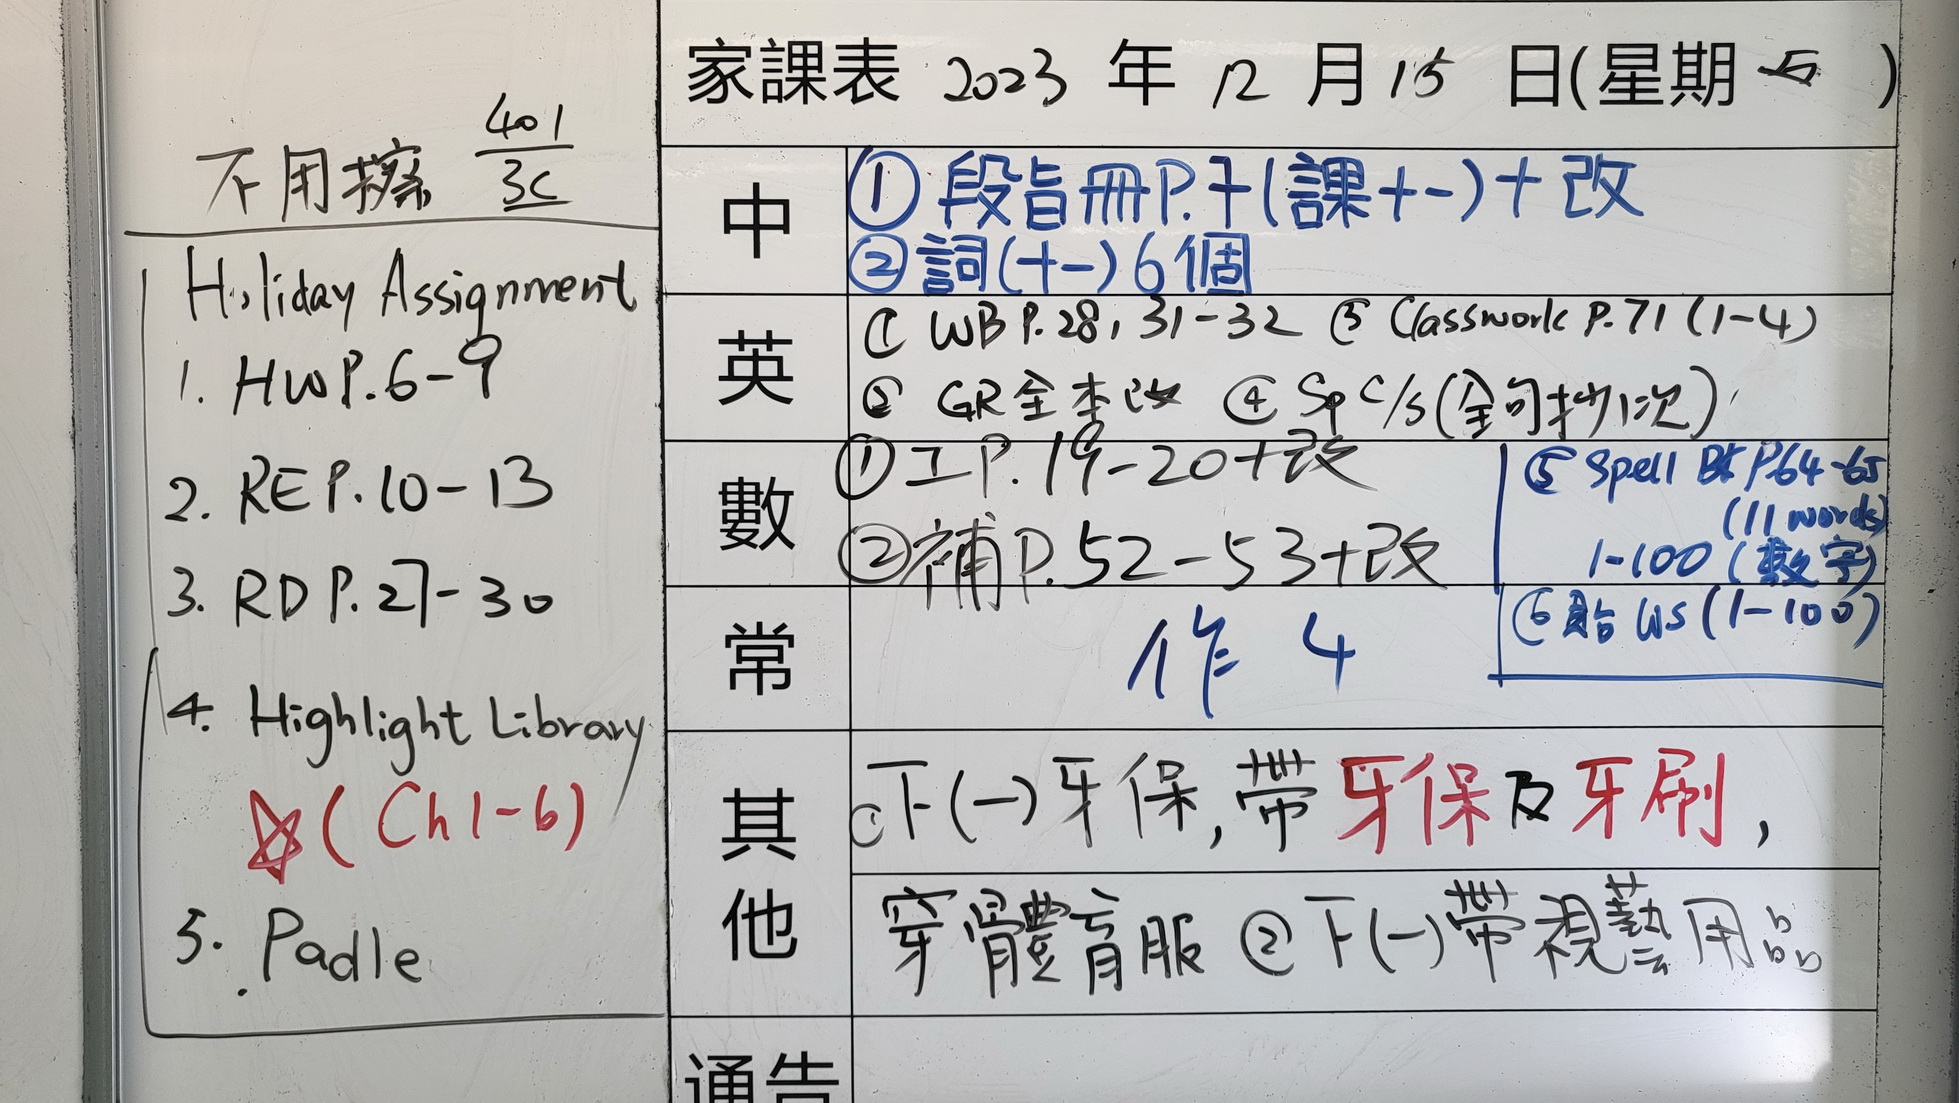 不用擦 401
3C
Holiday Assignment
1. HW P.6-9
2. RE P.10-13
3. RD P.27-30
4. Highlight Library
☆(Ch 1-6)
5. Padle
家課表 2023 年 12 月 15 日(星期五)
中
①段旨冊P.7(課十一)+改
②詞(十一)6個
英
① WB P.28, 31-32 ③ Classwork P.71 (1-4)
② GR全本改 ④ Sp C/S (全句抄1次)
數
①工P.19-20+改
②補P.52-53+改
⑤ Spell BK P.64-65
(11 words)
1-100 (數字)
⑥ 貼 WS (1-100)
常
作 4
其他
①下(一)牙保,帶牙保及牙刷,
穿體育服 ②下(一)帶視藝用品
通告